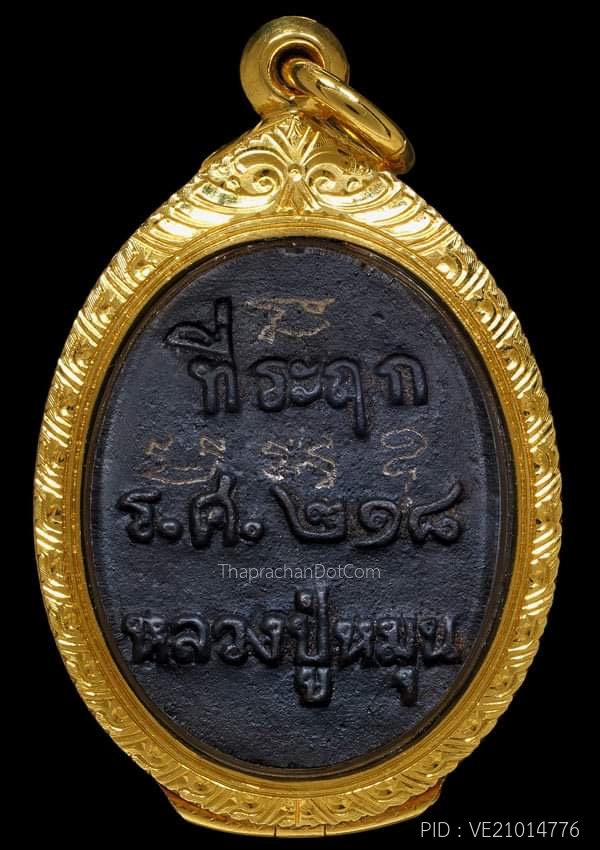 ที่ระฤก
ร.ศ.๒๑๘
ThaprachanDotCom
หลวงปู่หมุน
PID : VE21014776